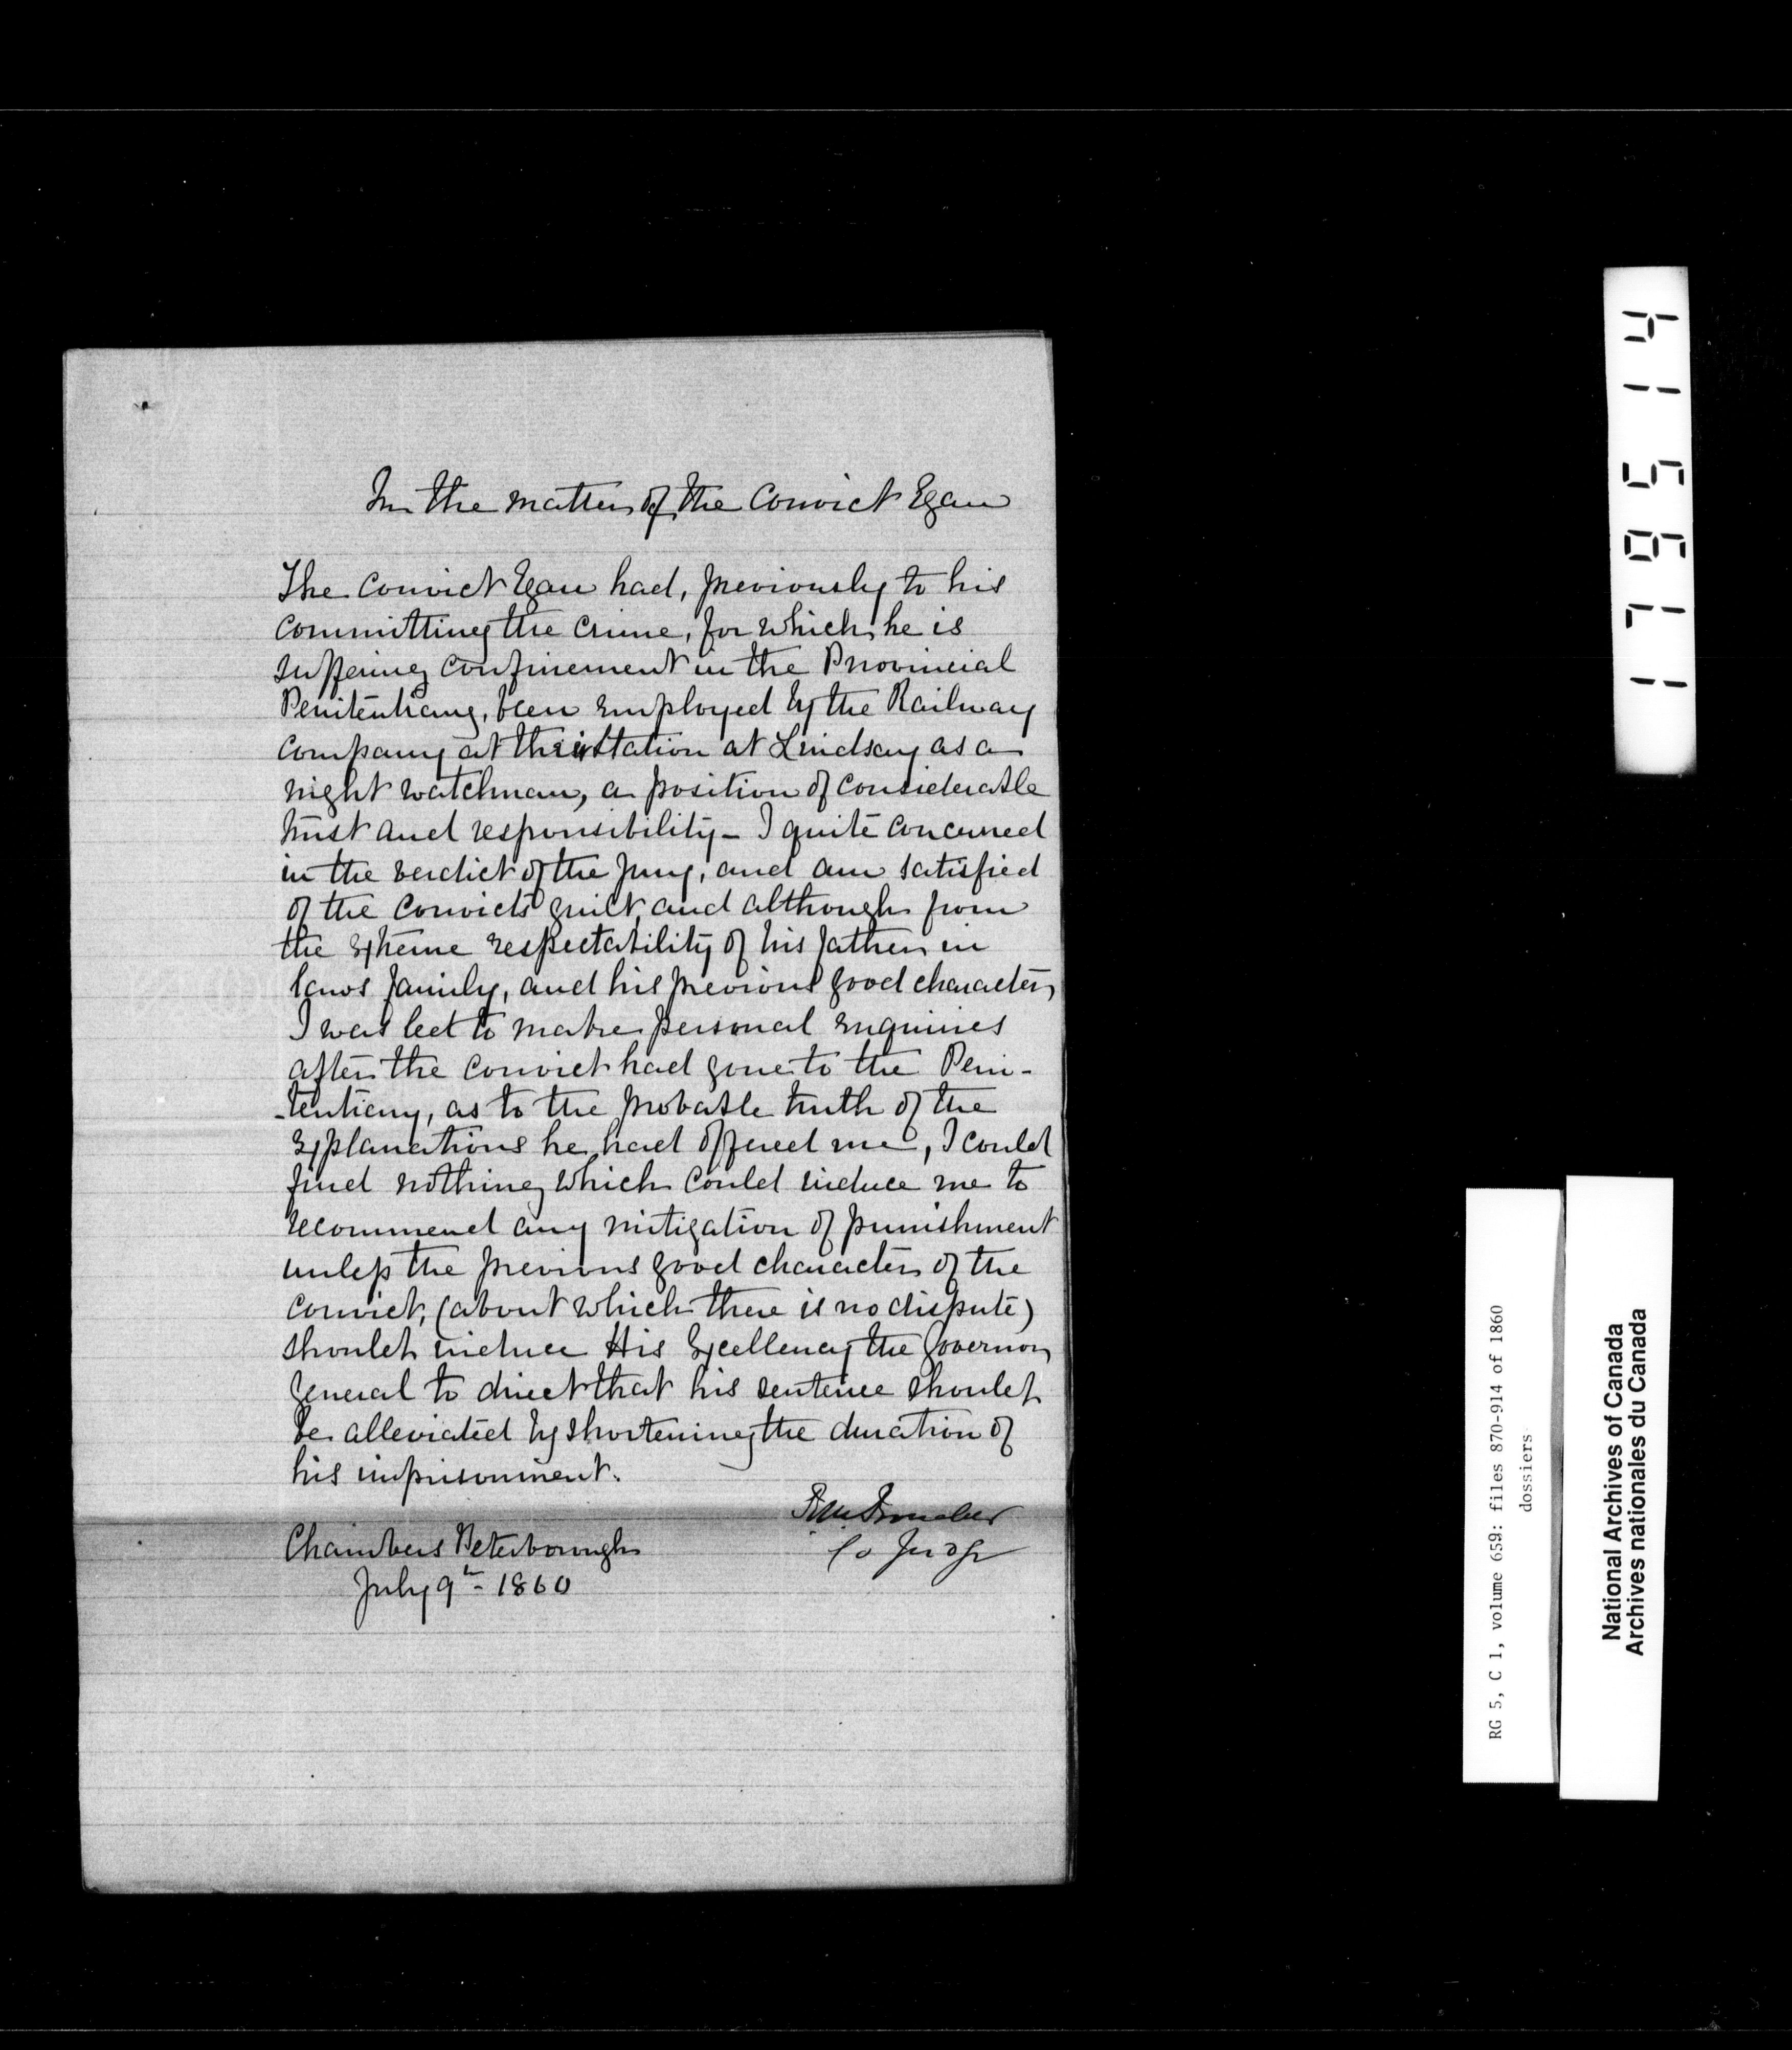 In the matter of the Convict Egan
The Convict Egan had, previously to his
committing the crime, for which he is
suffering confinement in the Provincial
Penitentiary, been employed by the Railway
Company at their station at Lindsay as a
night watchman, a position of considerable
trust and responsibility – I quite concurred
in the verdict of the Jury, and am satisfied
of the Convicts guilt, and although from
the extreme respectability of his father in
laws family, and his previous good character,
I was led to make personal enquiries
after the convict had gone to the Peni-
-tentiary, as to the probable truth of the
explanations he had offered me, I could
find nothing which could induce me to
recommend any mitigation of punishment
unless the previous good character of the
convict, (about which there is no dispute)
should induce His Excellency the Governor
General to direct that his sentence should
be alleviated by shortening the duration of
his imprisonment.
Co Judge
Chambers Peterborough
July 9th - 1860
175614
RG 5, C 1, volume 659: files 870-914 of 1860
dossiers
National Archives of Canada
Archives nationales du Canada